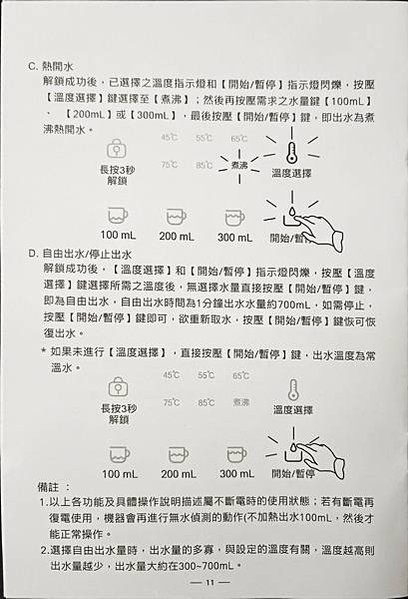 C. 熱開水
解鎖成功後，已選擇之溫度指示燈和【開始/暫停】指示燈閃爍，按壓
【溫度選擇】鍵選擇至【煮沸】；然後再按壓需求之水量鍵【100mL】
、【200mL】或【300mL】，最後按壓【開始/暫停】鍵，即出水為煮
沸熱開水。
45℃ 55℃ 65℃
75℃ 85℃ 煮沸
長按3秒
解鎖
溫度選擇
100 mL 200 mL 300 mL 開始/暫
D. 自由出水/停止出水
解鎖成功後，【溫度選擇】和【開始/暫停】指示燈閃爍，按壓【溫度
選擇】鍵選擇所需之溫度後，無選擇水量直接按壓【開始/暫停】鍵，
即為自由出水，自由出水時間為1分鐘出水水量約700mL，如需停止，
按壓【開始/暫停】鍵即可，欲重新取水，按壓【開始/暫停】鍵恢可恢
復出水。
* 如果未進行【溫度選擇】，直接按壓【開始/暫停】鍵，出水溫度為常
溫水。
45℃ 55℃ 65℃
75℃ 85℃ 煮沸
長按3秒
解鎖
溫度選擇
100 mL 200 mL 300 mL 開始/暫停
備註：
1.以上各功能及具體操作說明描述屬不斷電時的使用狀態；若有斷電再
復電使用，機器會再進行無水偵測的動作(不加熱出水100mL，然後才
能正常操作。
2.選擇自由出水量時，出水量的多寡，與設定的溫度有關，溫度越高則
出水量越少，出水量大約在300~700mL。
— 11 —